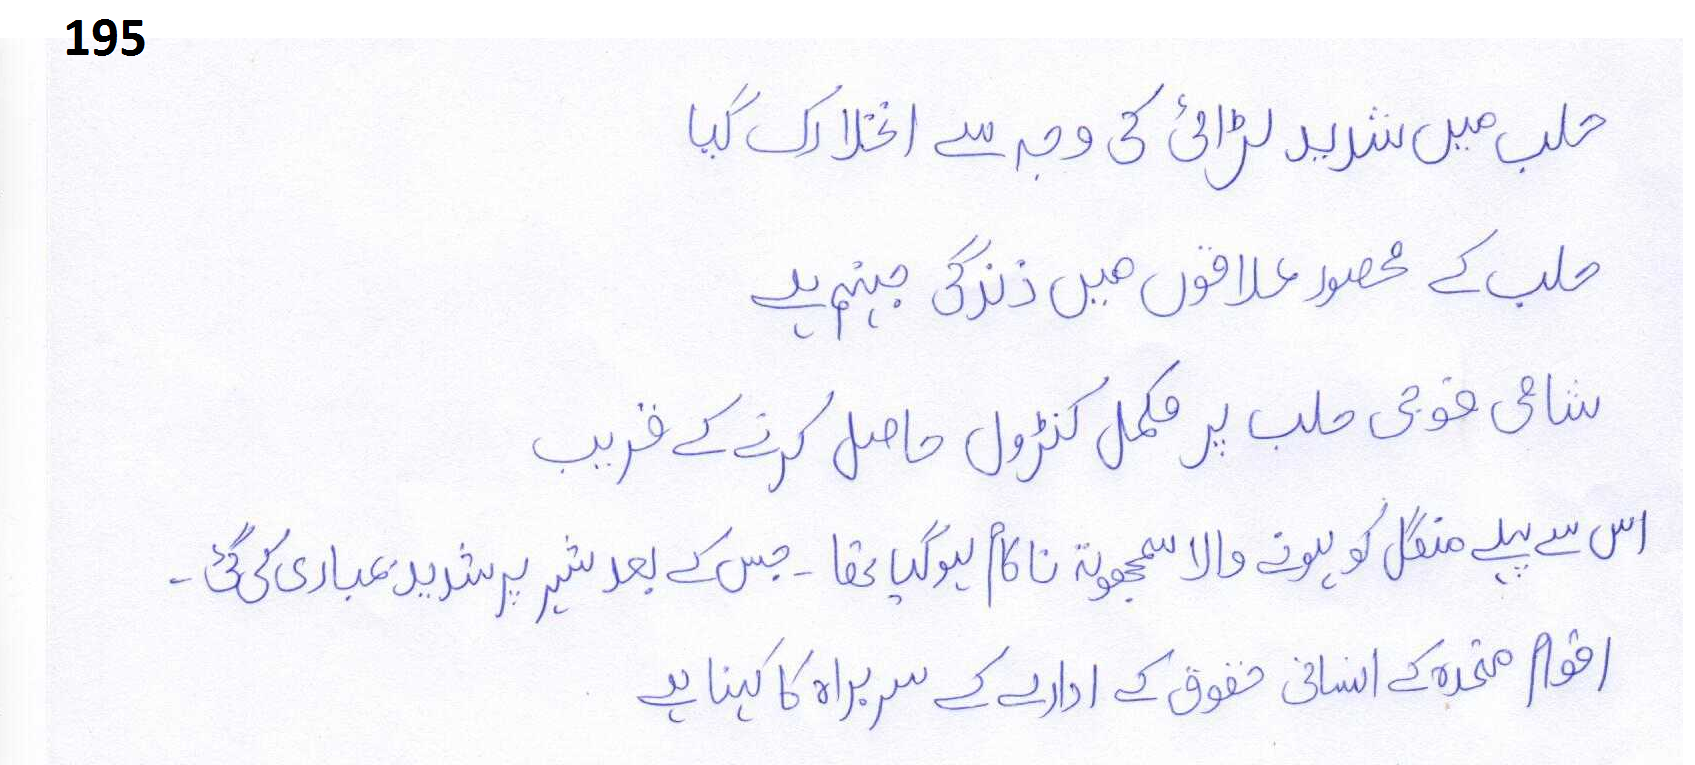 195
حلب میں شدید لڑائی کی وجہ سے انخلا رک گیا
حلب کے محصور علاقوں میں ذندگی جہنم ہے
شامی فوجی حلب پر مکمل کنڑول حاصل کرنے کے قریب
اس سے پہلے منگل کو ہونے والا سمجھوتہ ناکام ہوگیا تھا ۔ جس کے بعد شہر پر شدید بمباری کی گئی ۔
اقوام متحدہ کے انسانی حقوق کے ادارے کے سربراہ کا کہنا ہے